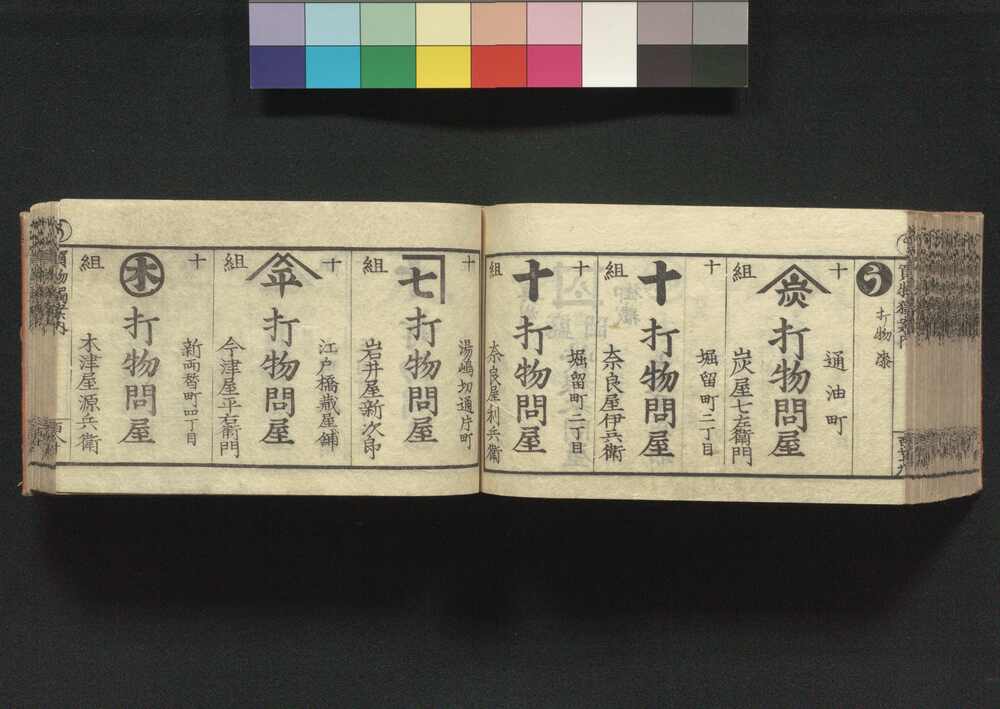 う
打物
十
通油町
炭
打物問屋
組
炭屋七左衛門
十
堀留町二丁目
十
打物問屋
組
奈良屋伊兵衛
十
堀留町二丁目
十
打物問屋
組
奈良屋利兵衛
十
湯嶋切通片町
七
打物問屋
組
岩井屋新次郎
十
江戸橋蔵屋鋪
平
打物問屋
組
今津屋平右衛門
十
新両替町四丁目
木
打物問屋
組
木津屋源兵衛